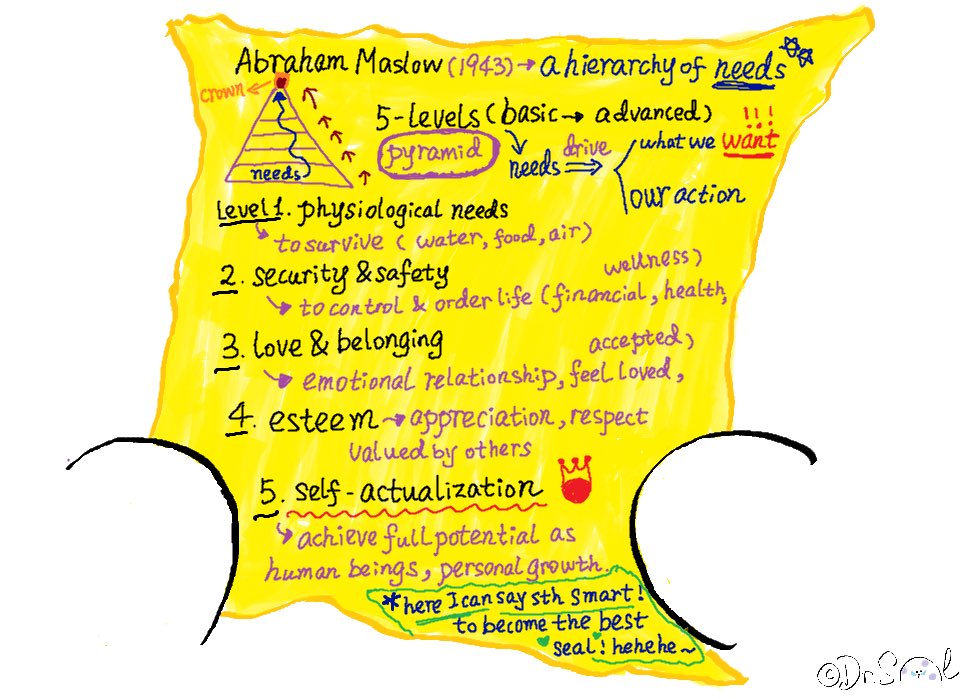 Abraham Maslow (1943) → a hierarchy of needs
crown
5-levels (basic → advanced)
!!!
pyramid
needs drive what we want
our action
needs
Level 1. physiological needs
to survive (water, food, air)
2. security & safety
to control & order life (financial, health,
wellness)
3. love & belonging
emotional relationship, feel loved,
accepted)
4. esteem → appreciation, respect
valued by others
5. self-actualization
achieve full potential as
human beings, personal growth.
*here I can say sth smart!
to become the best
seal! hehehe~
©Dr.Seal